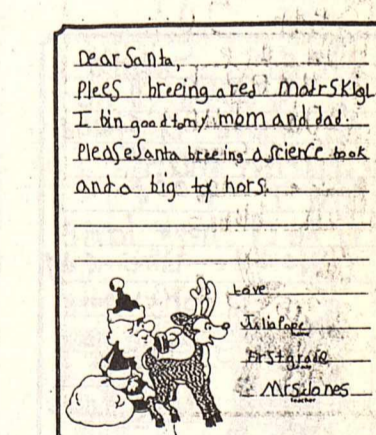 Dear Santa,
Plees breeing a red motrskigl
I bin good to my mom and dad.
Please Santa breeing a science book
and a big toy hors.
Love
Julia Pope
First grade
Mrs. Jones
teacher